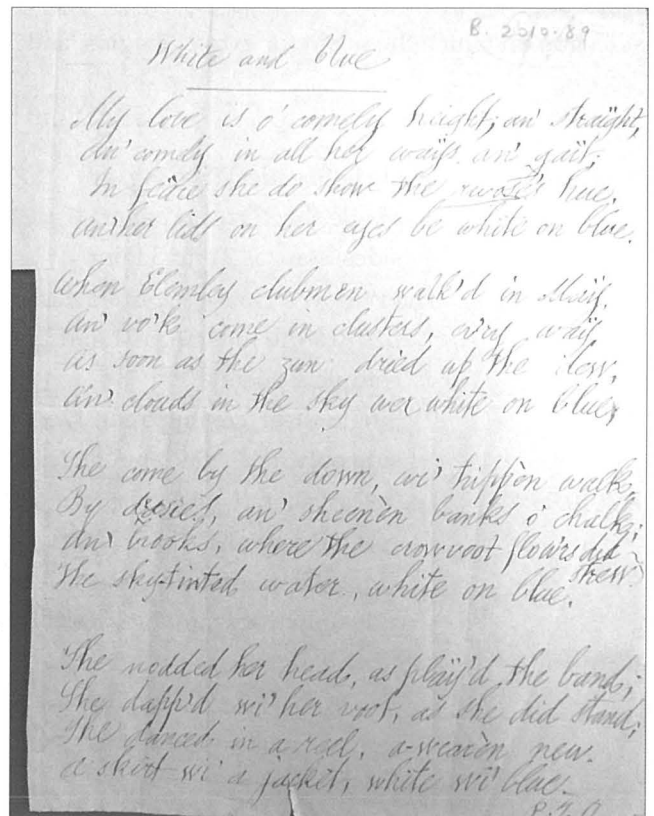 B. 2010.89
White and blue
My love is o' comely height, an' straight,
An' comely in all her ways an' gaït;
In feäce she do show the rwose's hue,
an' her lids on her eyes be white on blue.
When Elemley clubmen walk'd in Maÿ,
an' vo'k come in clusters, ev'ry waÿ
as soon as the zun dried up the dew,
an' clouds in the sky wer white on blue,
She come by the down, wi' trippèn walk,
By deäsies, an' sheenèn banks o' chalk;
An' brooks, where the crowvoot flow'rs did
strew
The sky-tinted water, white on blue.
She nodded her head, as plaÿ'd the band;
She dapp'd wi' her voot, as she did stand;
She danced in a reel, a-weärèn new
a skirt wi' a jacket, white wi' blue.
P.T.O